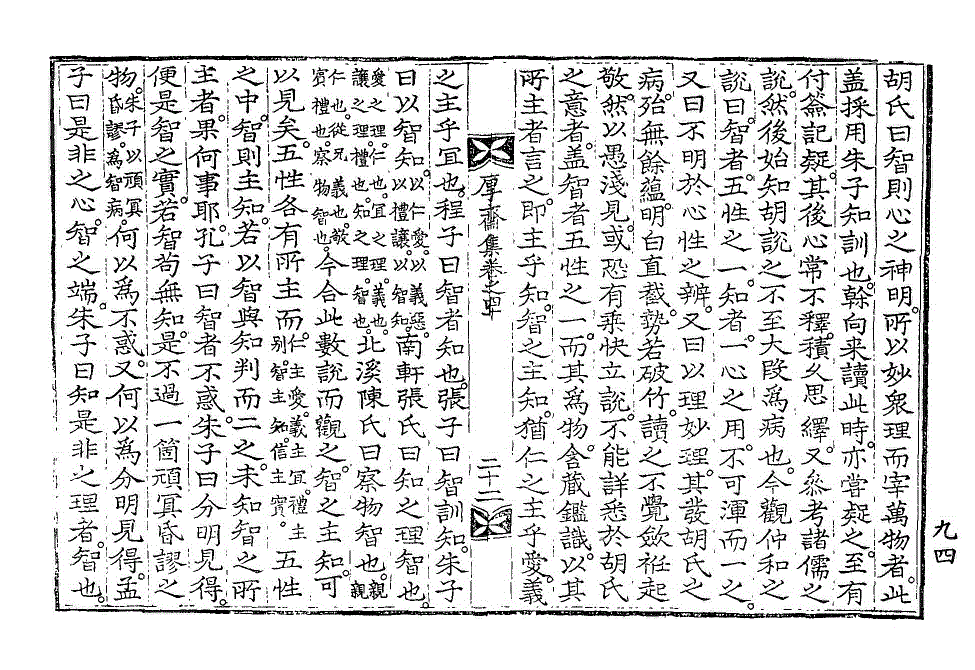 胡氏曰智則心之神明。所以妙衆理而宰萬物者。此
盖採用朱子知訓也。榦向来讀此時。亦嘗疑之。至有
付籤記疑。其後心常不釋。積久思繹。又叅考諸儒之
說。然後始知胡說之不至大段爲病也。今觀仲和之
說曰。智者。五性之一。知者。一心之用。不可渾而一之。
又曰不明於心性之辨。又曰以理妙理。其發胡氏之
病。殆無餘蘊。明白直截。勢若破竹。讀之不覺歛袵起
敬。然以愚淺見。或恐有乘快立說。不能詳悉於胡氏
之意者。盖智者五性之一。而其爲物。含藏鑑識。以其
所主者言之。即主乎知。智之主知。猶仁之主乎愛。義
厚齋集卷之四十
二十二
之主乎宜也。程子曰智者知也。張子曰智訓知。朱子
曰以智知。以仁愛。以義惡。以禮讓。以智知。南軒張氏曰知之理智也。
愛之理。仁也。宜之理。義也。讓之理。禮也。知之理。智也。北溪陳氏曰察物智也。親親
仁也。從兄義也。敬賓禮也。察物智也。今合此數說而觀之。智之主知。可
以見矣。五性各有所主。而仁主愛。義主宜。禮主别。智主知。信主實。五性
之中。智則主知。若以智與知判而二之。未知智之所
主者。果何事耶。孔子曰智者不惑。朱子曰分明見得。
便是智之實。若智苟無知。是不過一箇頑冥昏謬之
物。朱子以頑冥昏謬。爲智病。何以爲不惑。又何以爲分明見得。孟
子曰是非之心智之端。朱子曰知是非之理者。智也。
九四